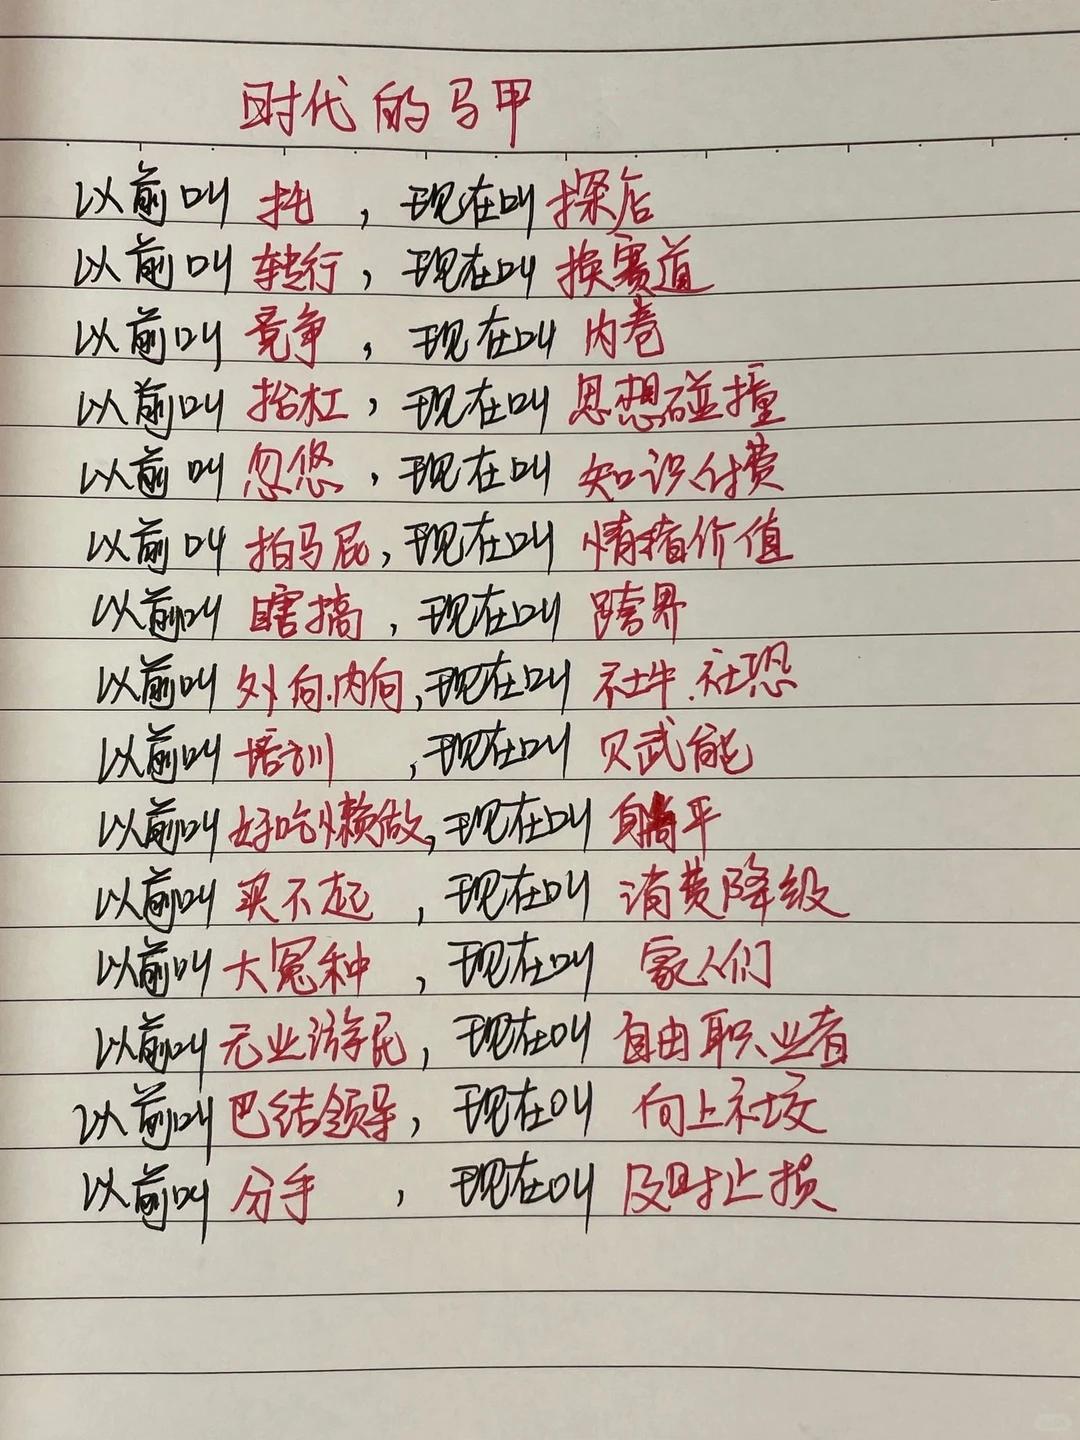 时代的马甲
以前叫 托 , 现在叫 探店
以前叫 转行, 现在叫 换赛道
以前叫 竞争 , 现在叫 内卷
以前叫 抬杠, 现在叫 思想碰撞
以前叫 忽悠 , 现在叫 知识付费
以前叫 拍马屁, 现在叫 情绪价值
以前叫 瞎搞 , 现在叫 跨界
以前叫 外向.内向, 现在叫 社牛.社恐
以前叫 培训 , 现在叫 贝武能
以前叫 好吃懒做, 现在叫 躺平
以前叫 买不起 , 现在叫 消费降级
以前叫 大冤种 , 现在叫 家人们
以前叫 无业游民, 现在叫 自由职业者
以前叫 巴结领导, 现在叫 向上社交
以前叫 分手 , 现在叫 及时止损